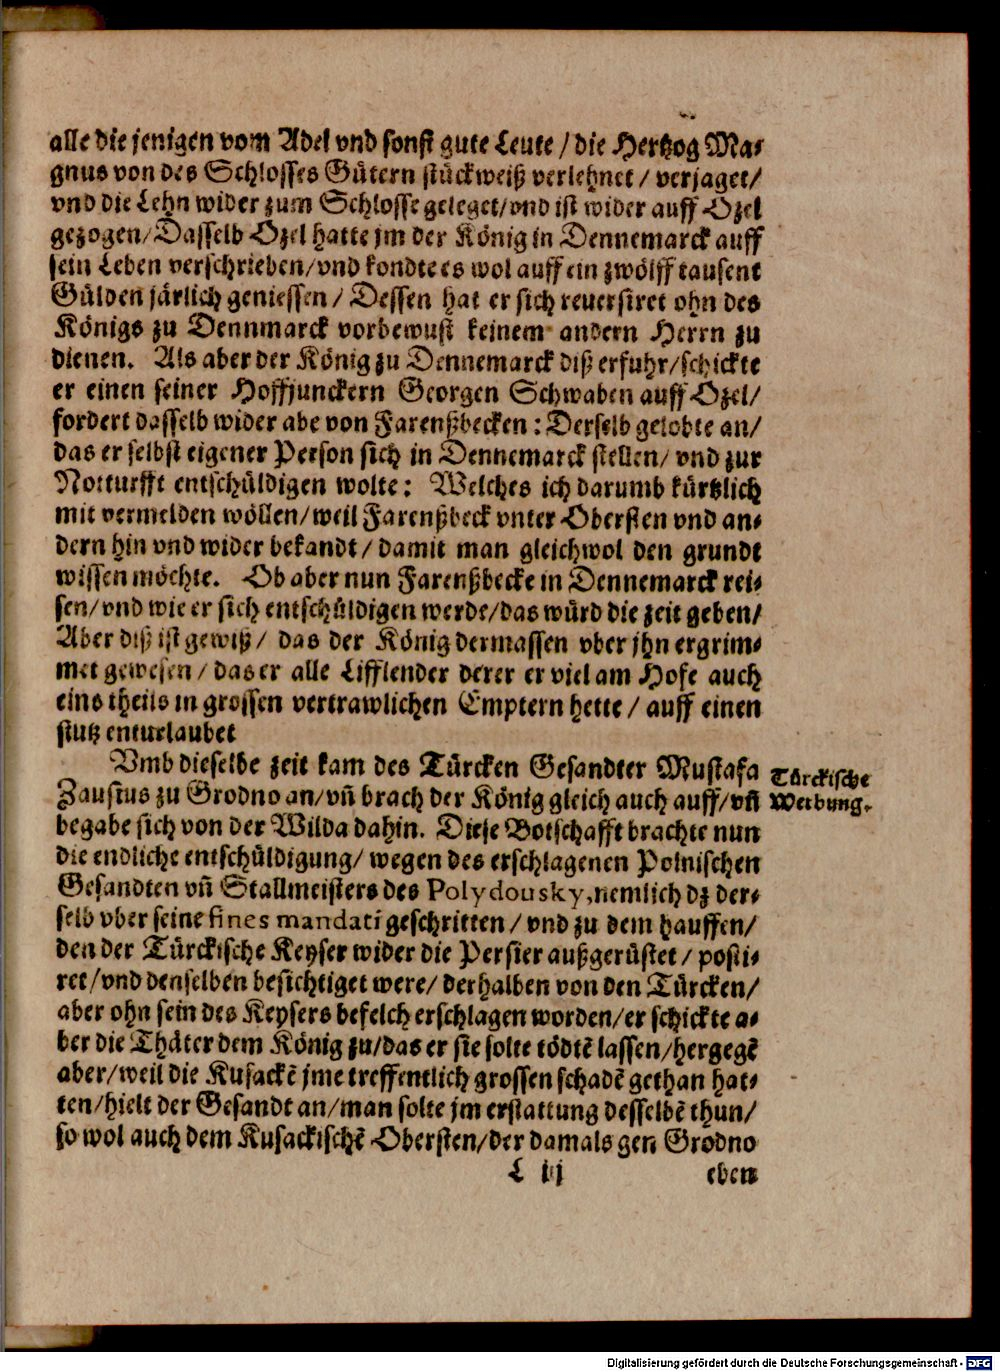 alle die jenigen vom Adel vnd sonst gute Leute / die Hertzog Mag⸗
gnus von des Schlosses Gütern stückweiß verlehnet / verjaget/
vnd die Lehn wider zum Schlosse geleget/vnd ist wider auff Ozel
gezogen/Dasselb Ozel hatte jm der König in Dennemarck auff
sein Leben verschrieben/vnd kondte es wol auff ein zwölff tausent
Gülden järlich geniessen / Dessen hat er sich reuersiret ohn des
Königs zu Dennmarck vorbewust keinem andern Herrn zu
dienen. Als aber der König zu Dennemarck diß erfuhr/schickte
er einen seiner Hoffjunckern Georgen Schwaben auff Ozel/
fordert dasselb wider abe von Farenßbecken : Derselb gelobte an/
das er selbst eigener Person sich in Dennemarck stellen/ vnd zur
Notturfft entschüldigen wolte: Welches ich darumb kürtzlich
mit vermelden wöllen/weil Farenßbeck vnter Obersten vnd an⸗
dern hin vnd wider bekandt / damit man gleichwol den grundt
wissen möchte. Ob aber nun Farenßbecke in Dennemarck rei⸗
sen/vnd wie er sich entschüldigen werde/das würd die zeit geben/
Aber diß ist gewiß / das der König dermassen vber jhn ergrim⸗
met gewesen / das er alle Lifflender derer er viel am Hofe auch
eins theils in grossen vertrawlichen Emptern hette / auff einen
stutz enturlaubet
Vmb dieselbe zeit kam des Türcken Gesandter Mustafa
Zaustus zu Grodno an/vñ brach der König gleich auch auff/vñ
begabe sich von der Wilda dahin. Diese Botschafft brachte nun
die endliche entschüldigung/ wegen des erschlagenen Polnischen
Gesandten vñ Stallmeisters des Polydousky, nemlich dz der⸗
selb vber seine fines mandati geschritten / vnd zu dem hauffen/
den der Türckische Keyser wider die Persier außgerüstet / posti⸗
ret/vnd denselben besichtiget were/ derhalben von den Türcken/
aber ohn sein des Keysers befelch erschlagen worden/er schickte a⸗
ber die Thäter dem König zu/das er sie solte tödtẽ lassen/hergegẽ
aber/weil die Kusackẽ jme treffentlich grossen schadẽ gethan hat⸗
ten/hielt der Gesandt an/man solte jm erstattung desselbẽ thun/
so wol auch dem Kusackischẽ Obersten/der damals gen Grodno
L iij
eben
Türckische
Werbung.
Digitalisierung gefördert durch die Deutsche Forschungsgemeinschaft - DFG